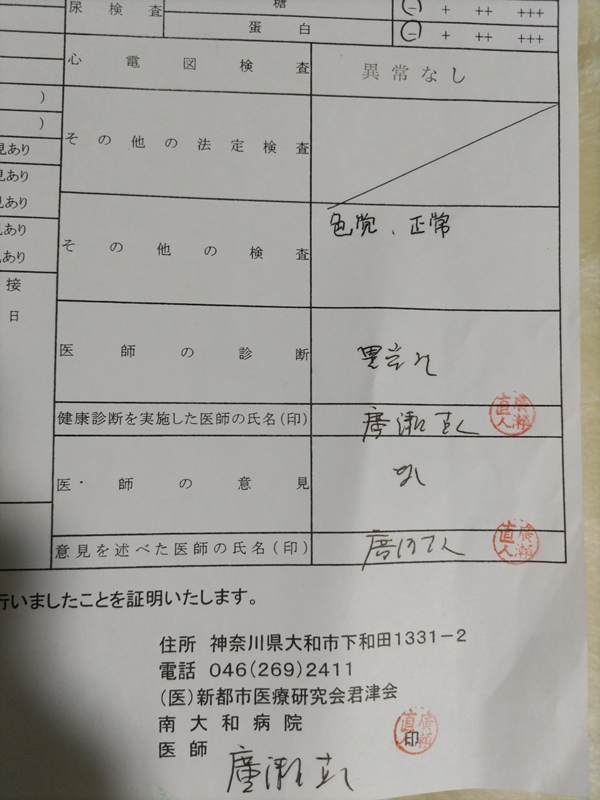 尿検査 糖 (-) + ++ +++
蛋白 (-) + ++ +++
心電図検査 異常なし
)
その他の法定検査
)
見あり
見あり
見あり
その他の検査 色覚、正常
見あり
見あり
接
日
医師の診断
健康診断を実施した医師の氏名(印) 廣瀬直人 廣瀬直人
医・師の意見 なし
意見を述べた医師の氏名(印) 廣瀬直人
行いましたことを証明いたします。
住所 神奈川県大和市下和田1331-2
電話 046(269)2411
(医)新都市医療研究会君津会
南大和病院
医師 廣瀬直人 印 廣瀬直人